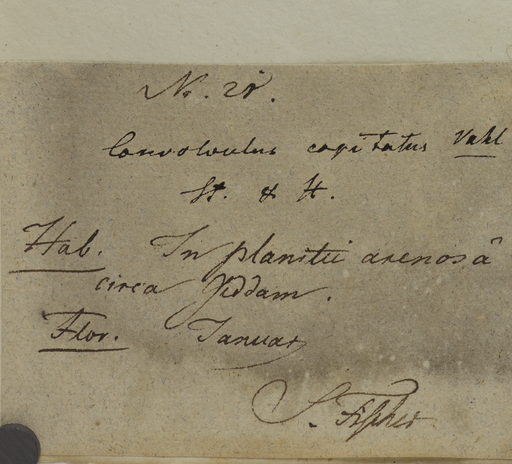 No. 28.
Convolvulus capitatus Vahl
St. & H.
Hab. In planitie arenosâ
circa Jiddam.
Flor. Januar